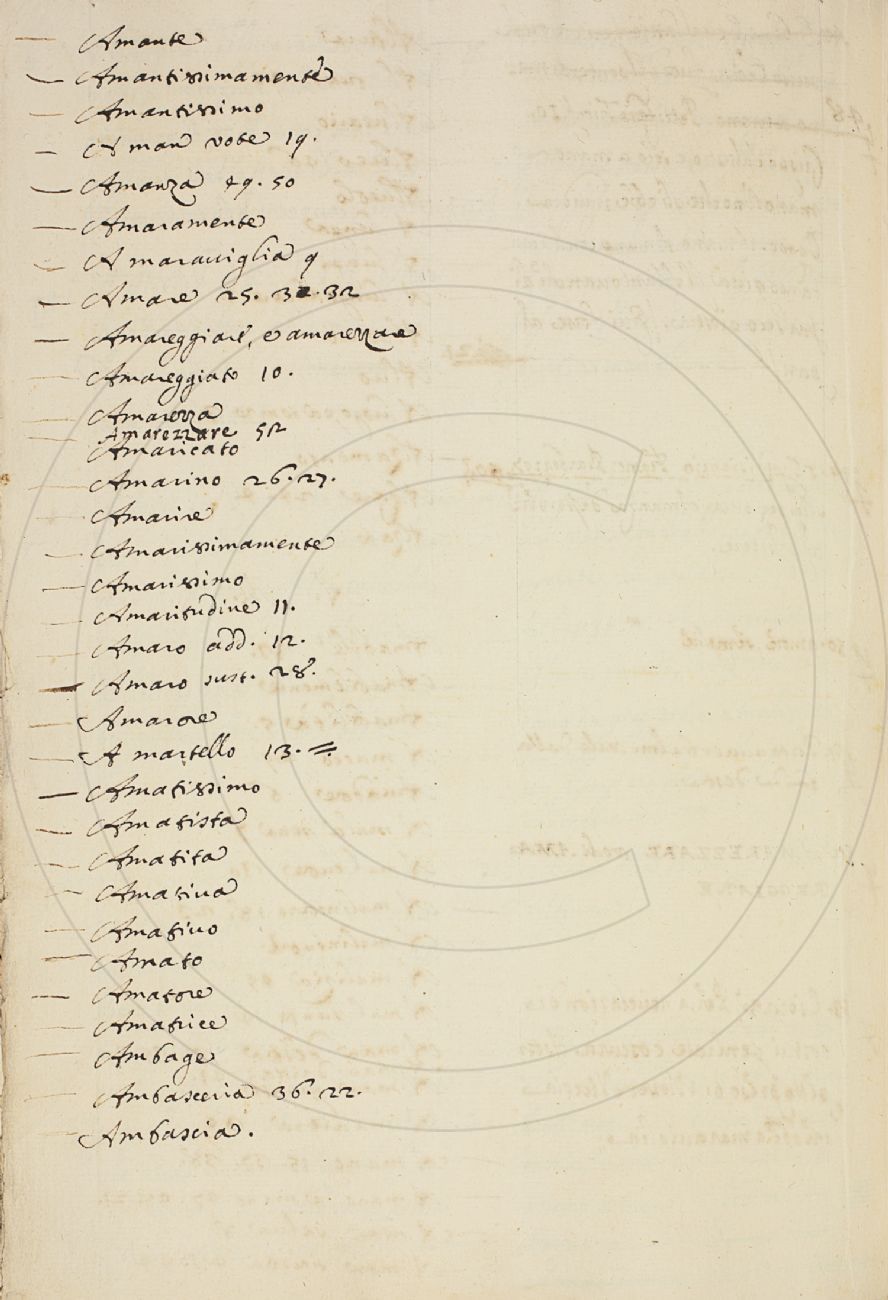 — Amante
— Amantissimamente
— Amantissimo
— A man vote 19.
— Amanza 49. 50
— Amaramente
— A maraviglia 9
— Amare 25. 32. 32
— Amareggiare, e amarezzare
— Amareggiato 10.
— Amarezza
— Amarezzare 52
Amaricato
— Amarino 26. 27.
— Amarire
— Amarissimamente
— Amarissimo
— Amaritudine 11.
— Amaro add. 12.
— Amaro sust. 28.
— Amarore
— A martello 13. =
— Amatissimo
— Amatista
— Amatita
— Amativa
— Amativo
— Amato
— Amatore
— Amatrice
— Ambage
— Ambasceria 36. 22.
— Ambascia.